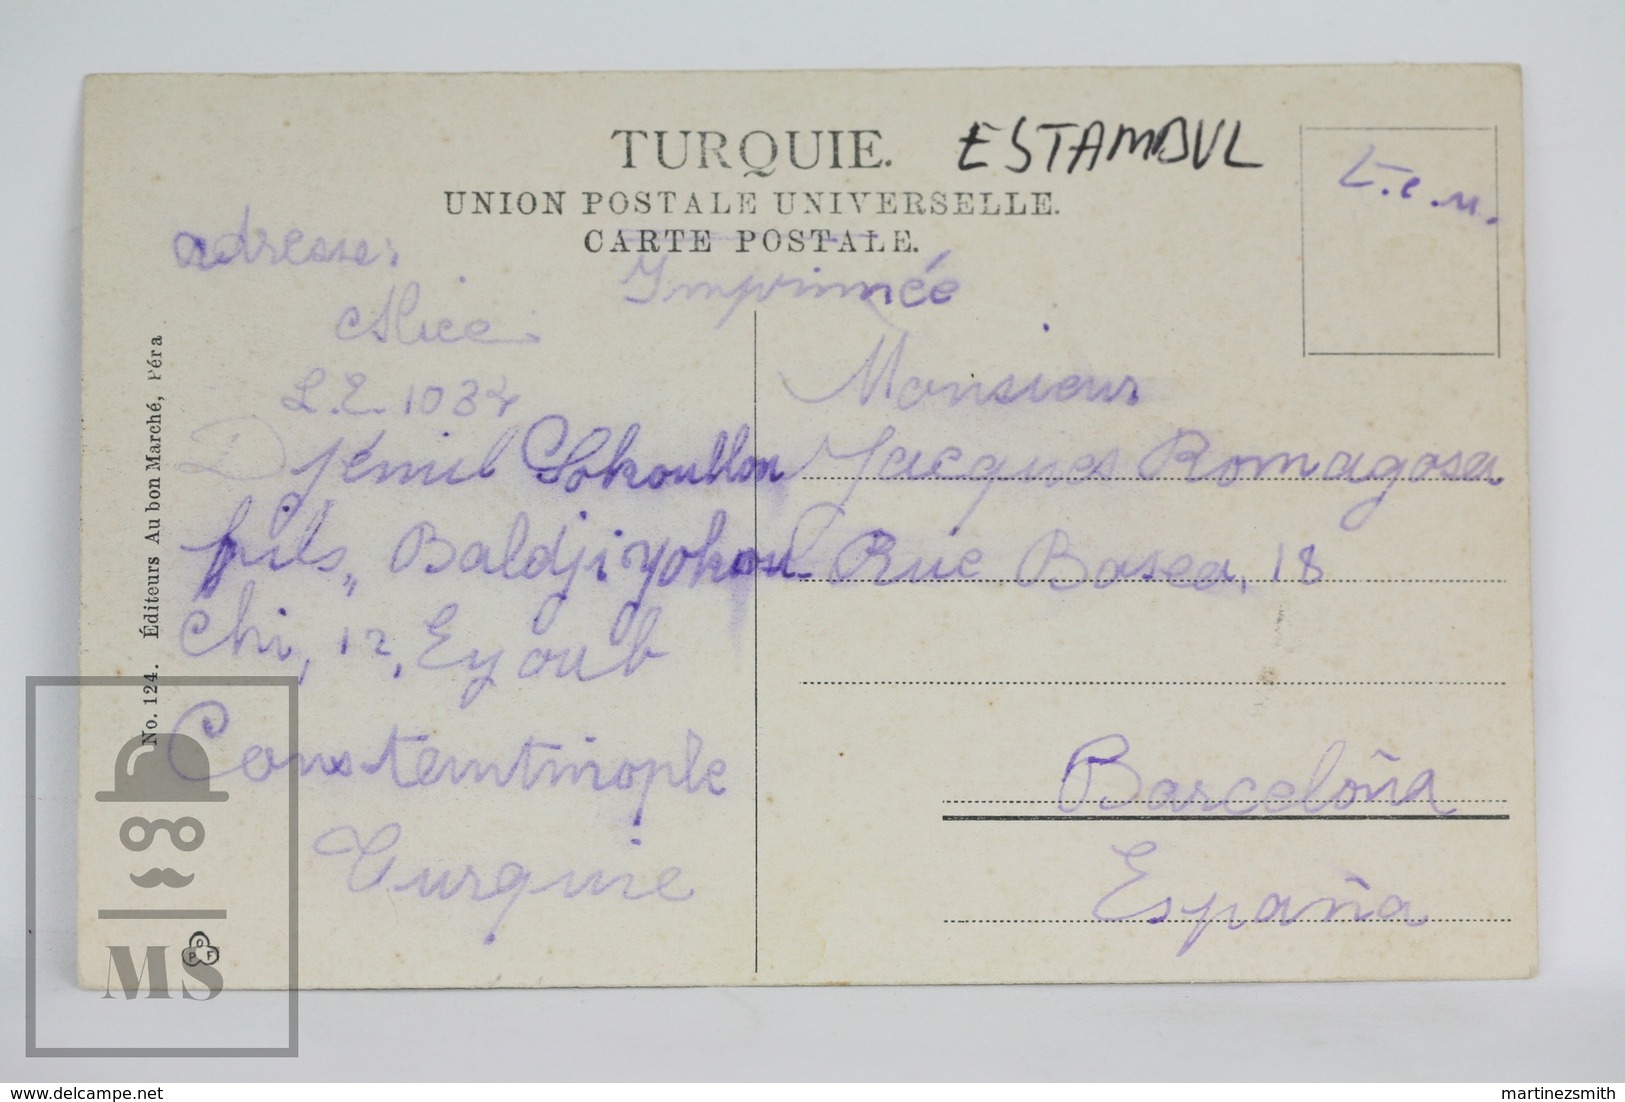 TURQUIE. ESTAMBUL
UNION POSTALE UNIVERSELLE.
CARTE POSTALE.
Imprimée
L.E.M.
adresse:
Alice
L.E. 1034
Djémil Sokoullou
fils, Baldjiyokou-
chi, 12, Eyoub
Constentinople
Turquie
Monsieur
Jacques Romagosa
Rue Basea, 18
Barceloña
España
No. 124. Éditeurs Au bon Marché, Péra
O
P F
MS
delcampe.net
martinezsmith